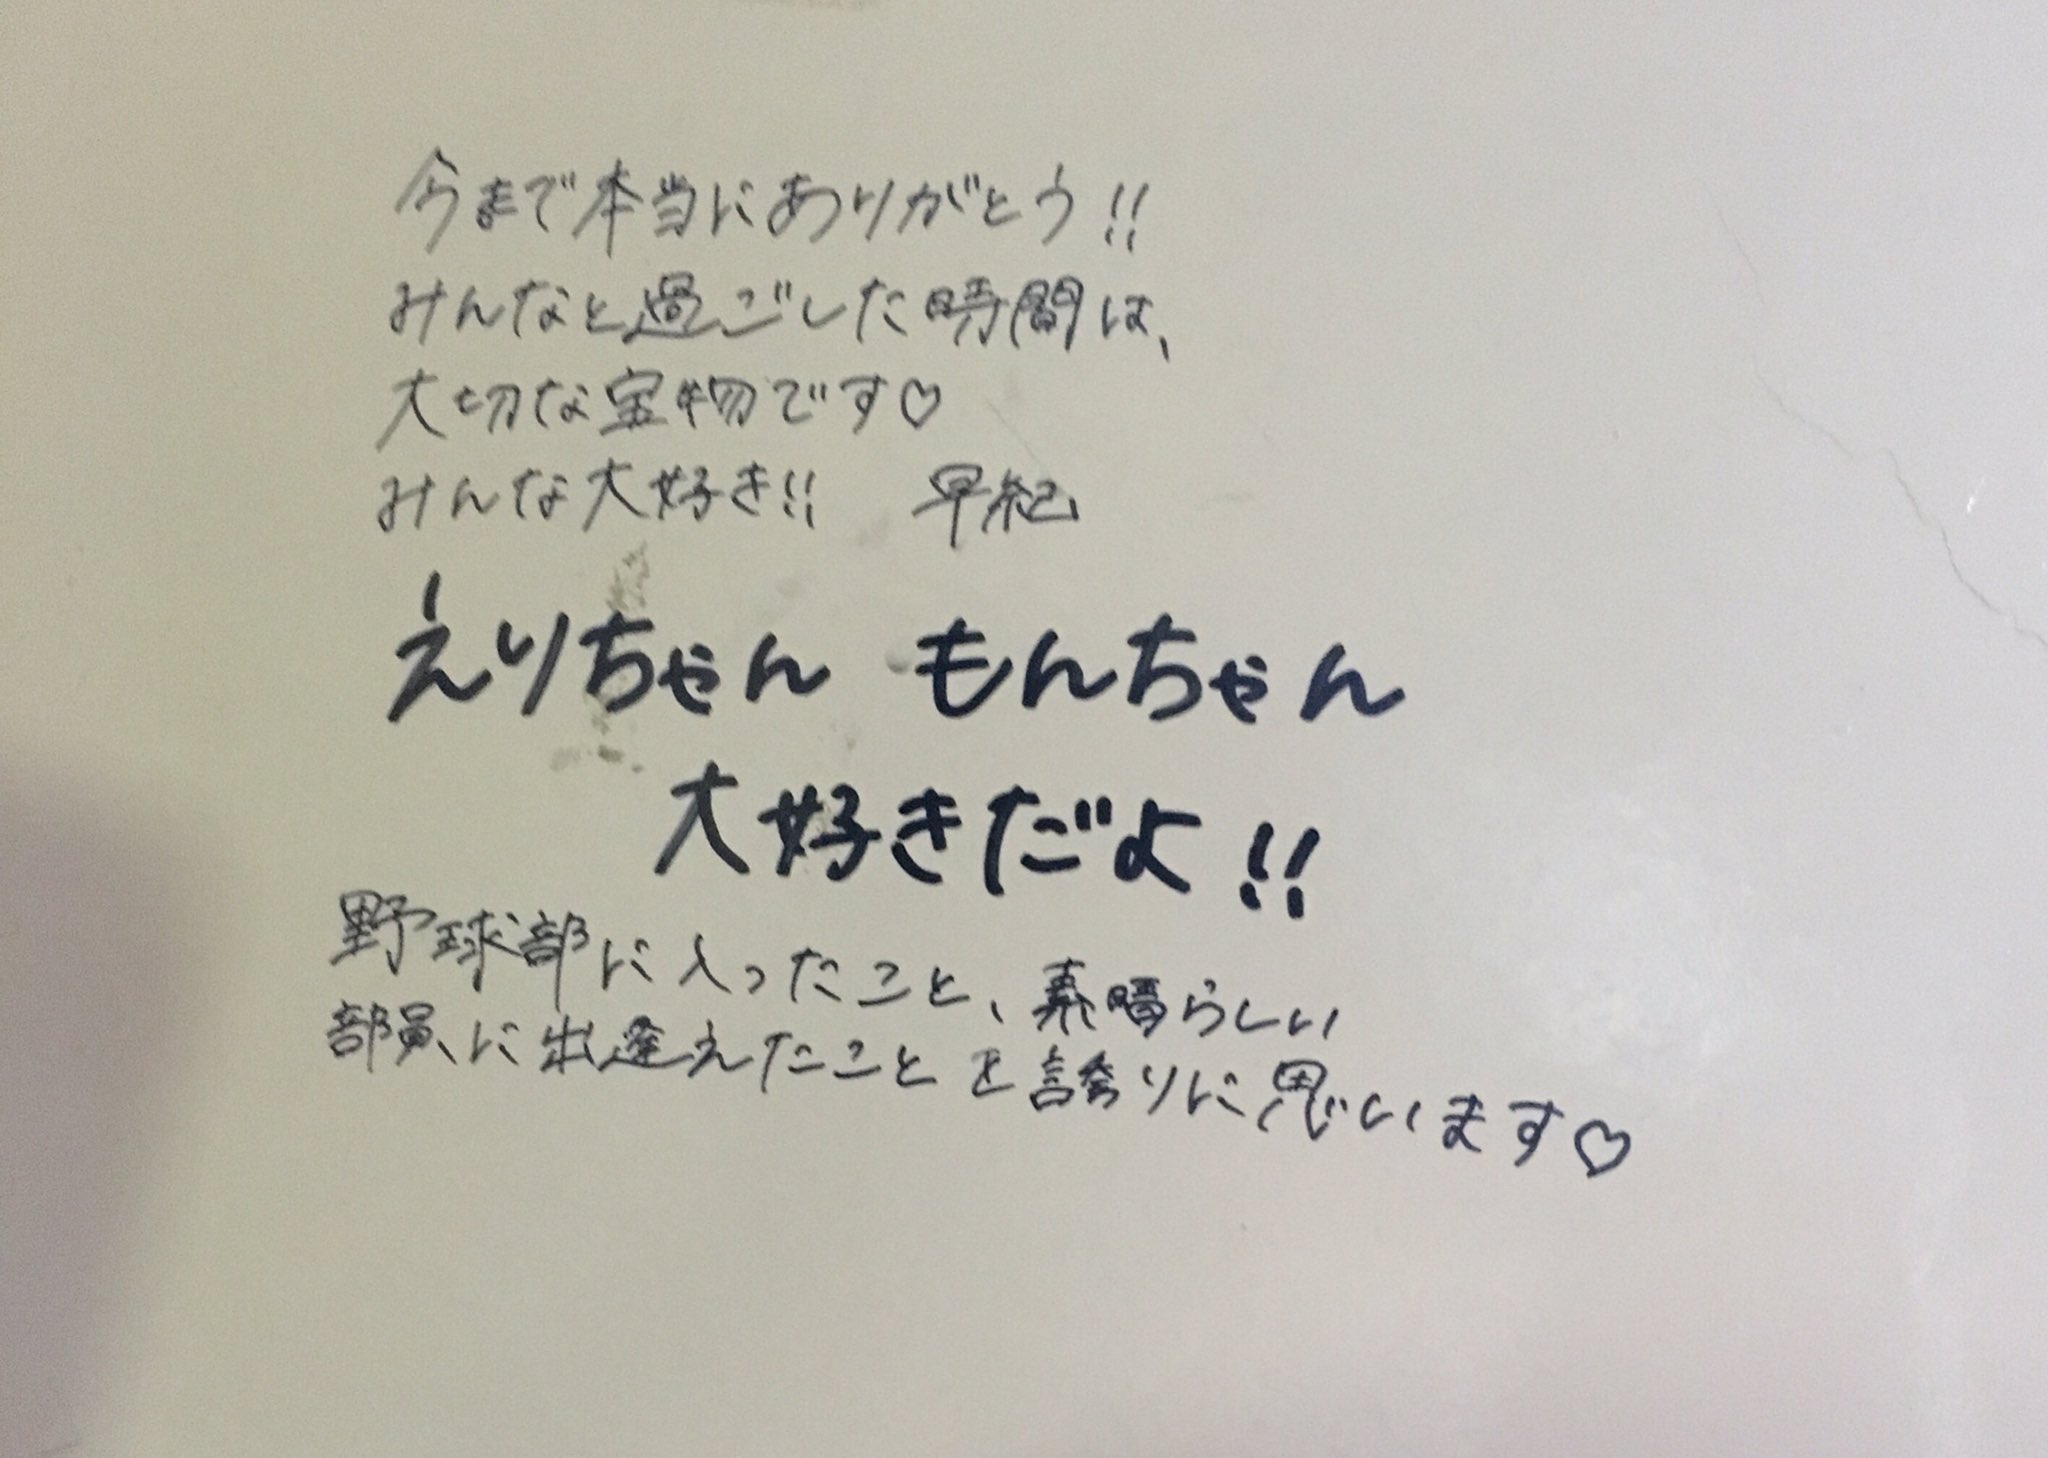 今まで本当にありがとう!!
みんなと過ごした時間は、
大切な宝物です♡
みんな大好き!! 早紀
えりちゃん もんちゃん
大好きだよ!!
野球部に入ったこと、素晴らしい
部員に出逢えたことを誇りに思います♡